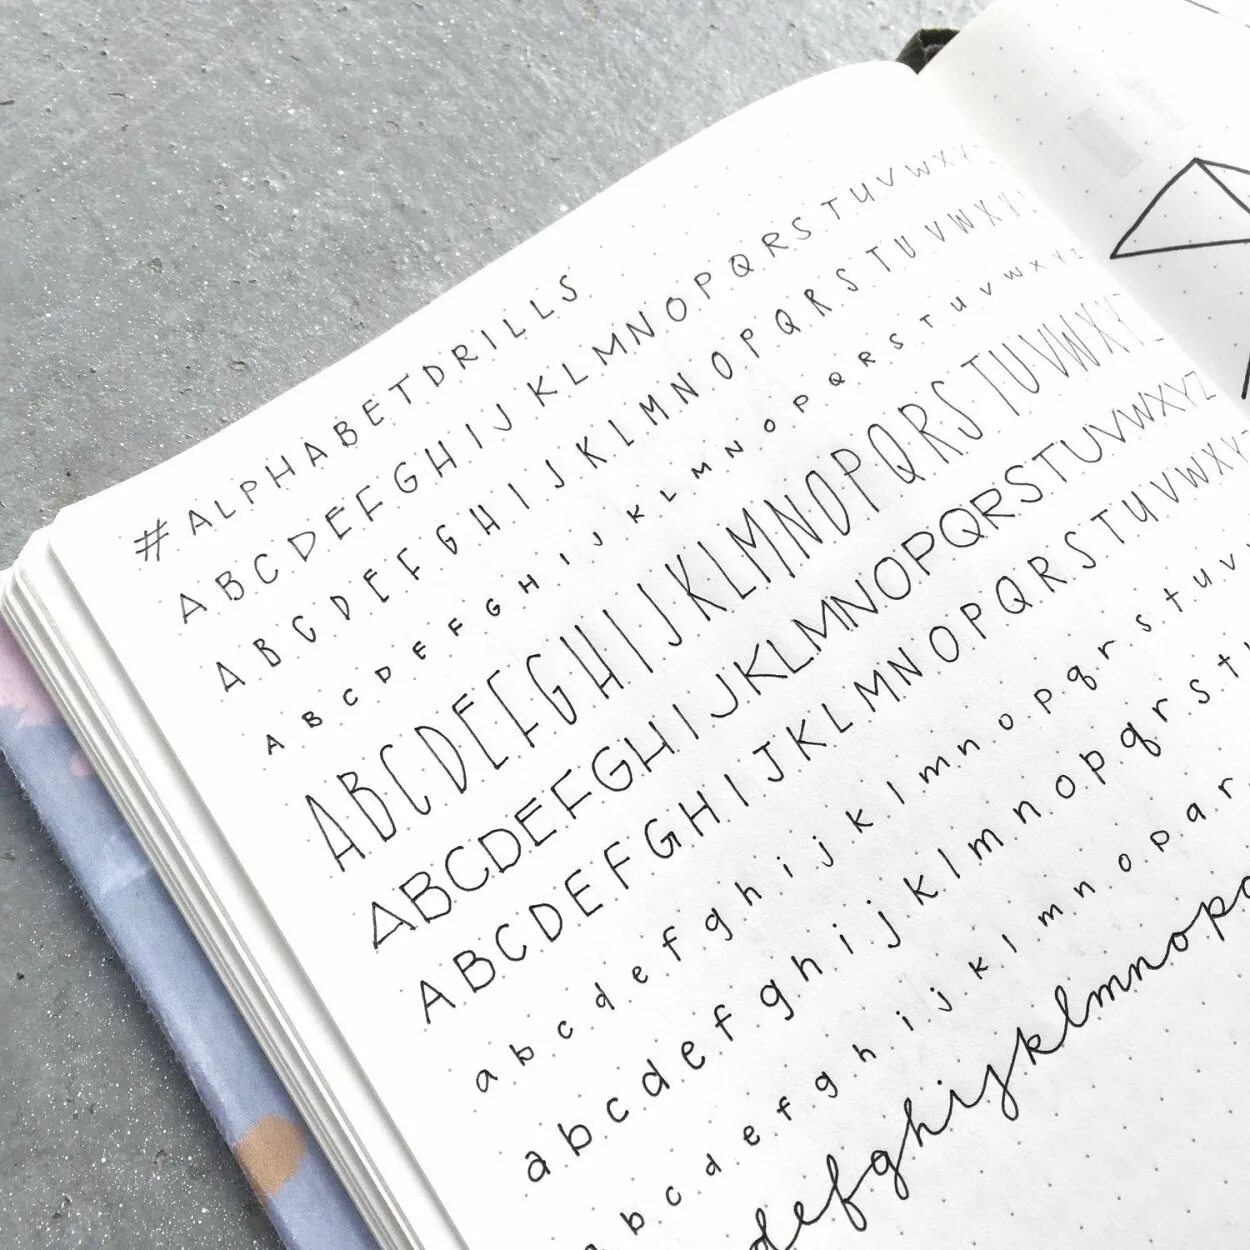 #ALPHABETDRILLS
A B C D E F G H I J K L M N O P Q R S T U V W X Y Z
A B C D E F G H I J K L M N O P Q R S T U V W X Y Z
A B C D E F G H I J K L M N O P Q R S T U V W X Y Z
A B C D E F G H I J K L M N O P Q R S T U V W X Y Z
A B C D E F G H I J K L M N O P Q R S T U V W X Y Z
A B C D E F G H I J K L M N O P Q R S T U V W X Y
a b c d e f g h i j k l m n o p q r s t u v
a b c d e f g h i j k l m n o p q r s t
a b c d e f g h i j k l m n o p q r
defghijklmnop